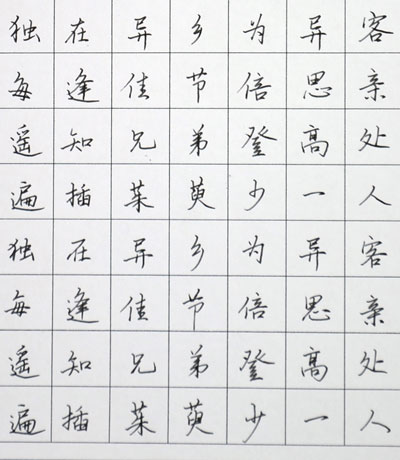 独在异乡为异客
每逢佳节倍思亲
遥知兄弟登高处
遍插茱萸少一人
独在异乡为异客
每逢佳节倍思亲
遥知兄弟登高处
遍插茱萸少一人